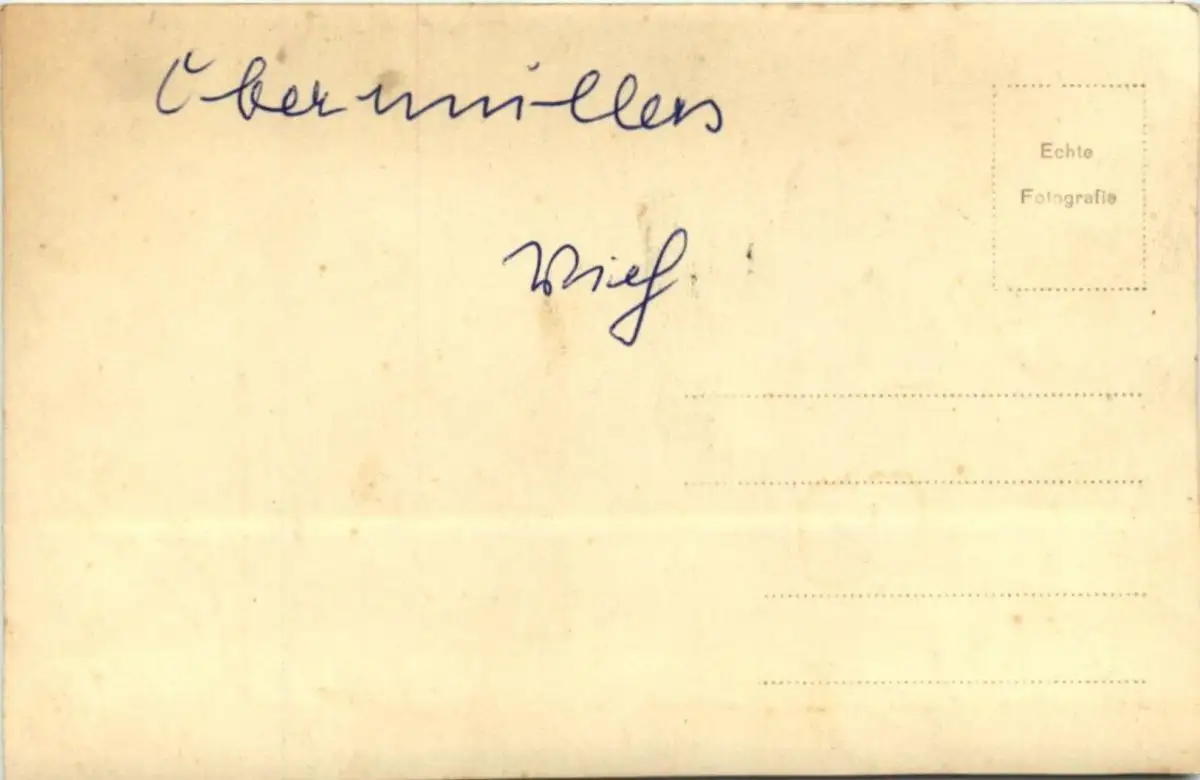 Obermüllers
Vieh
Echte
Fotografie